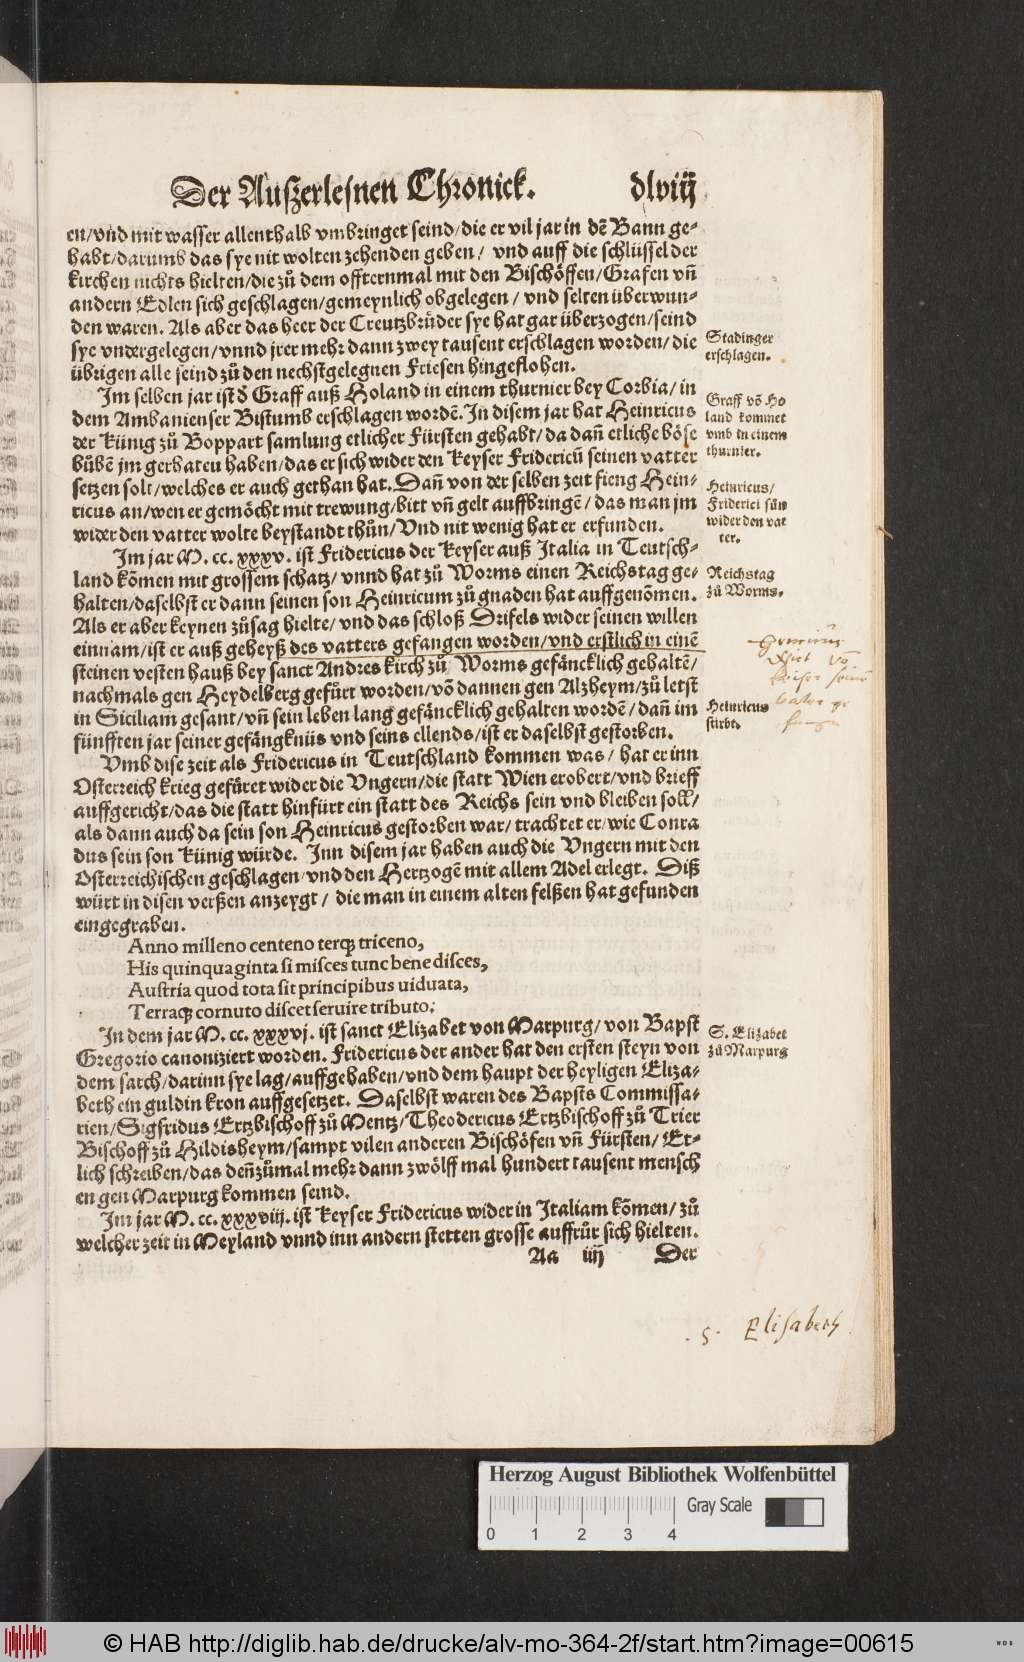 Der Außerlesnen Chronick. dlviij
en/vnd mit wasser allenthalb vmbringet seind/die er vil jar in dē Bann ge-
habt/darumb das sye nit wolten zehenden geben/ vnd auff die schlüssel der
kirchen nichts hielten/die zů dem offternmal mit den Bischöffen/Grafen vn̄
andern Edlen sich geschlagen/gemeynlich obgelegen/ vnd selten überwun-
den waren. Als aber das heer der Creutzbrüder sye hat gar überzogen/seind
sye vndergelegen/vnnd jrer mehr dann zwey tausent erschlagen worden/ die
übrigen alle seind zů den nechstgelegnen Friesen hingeflohen.
Stadinger
erschlagen.
Im selben jar ist d̄ Graff auß Holand in einem thurnier bey Corbia/ in
dem Ambanienser Bistumb erschlagen wordē. In disem jar hat Heinricus
der Künig zů Boppart samlung etlicher Fürsten gehabt/da dan̄ etliche böse
bůbē jm gerhaten haben/das er sich wider den Keyser Fridericū seinen vatter
setzen solt/welches er auch gethan hat. Dan̄ von der selben zeit fieng Hein-
ricus an/wen er gemöcht mit trewung/bitt vn̄ gelt auffbringē/ das man jm
wider den vatter wolte beystandt thůn/ Vnd nit wenig hat er erfunden.
Graff vō Ho
land kommet
vmb in einem
thurnier.
Heinricus/
Friderici sün
wider den vat
ter.
Im jar M. cc. xxxv. ist Fridericus der Keyser auß Italia in Teutsch-
land kōmen mit grossem schatz/ vnnd hat zů Worms einen Reichstag ge-
halten/daselbst er dann seinen son Heinricum zů gnaden hat auffgenōmen.
Als er aber keynen zůsag hielte/ vnd das schloß Drifels wider seinen willen
einnam/ist er auß geheyß des vatters gefangen worden/vnd erstlich in einē
steinen vesten hauß bey sanct Andres kirch zů Worms gefäncklich gehaltē/
nachmals gen Heydelberg gefürt worden/vō dannen gen Alzheym/zů letst
in Siciliam gesant/vn̄ sein leben lang gefäncklich gehalten wordē/ dan̄ im
fünfften jar seiner gefängknüs vnd seins ellends/ist er daselbst gestorben.
Reichstag
zů Worms.
Heinricus
stirbt.
Vmb dise zeit als Fridericus in Teutschland kommen was/ hat er inn
Osterreich krieg gefüret wider die Vngern/die statt Wien erobert/vnd brieff
auffgericht/das die statt hinfürt ein statt des Reichs sein vnd bleiben soll/
als dann auch da sein son Heinricus gestorben war/ trachtet er/wie Conra
dus sein son Künig würde. Inn disem jar haben auch die Vngern mit den
Osterreichischen geschlagen/vnd den Hertzogē mit allem Adel erlegt. Diß
würt in disen verßen anzeygt/ die man in einem alten felßen hat gefunden
eingegraben.
Anno milleno centeno terq; triceno,
His quinquaginta si misces tunc bene disces,
Austria quod tota sit principibus uiduata,
Terraq; cornuto discet seruire tributo.
In dem jar M. cc. xxxvj. ist sanct Elizabet von Marpurg/ von Bapst
Gregorio canoniziert worden. Fridericus der ander hat den ersten steyn von
dem sarch/darinn sye lag/auffgehaben/vnd dem haupt der heyligen Eliza-
beth ein guldin kron auffgesetzet. Daselbst waren des Bapsts Commissa-
rien/Sigfridus Ertzbischoff zů Mentz/Theodericus Ertzbischoff zů Trier
Bischoff zů Hildisheym/sampt vilen anderen Bischöfen vn̄ Fürsten/ Et-
lich schreiben/das den̄zůmal mehr dann zwölff mal hundert tausent mensch
en gen Marpurg kommen seind.
S. Elizabet
zů Marpurg
Im jar M. cc. xxxviij. ist Keyser Fridericus wider in Italiam kōmen/ zů
welcher zeit in Meyland vnnd inn andern stetten grosse auffrůr sich hielten.
Aa iiij Der
. S. Elisabeth
Herzog August Bibliothek Wolfenbüttel
0 1 2 3 4 Gray Scale
© HAB http://diglib.hab.de/drucke/alv-mo-364-2f/start.htm?image=00615